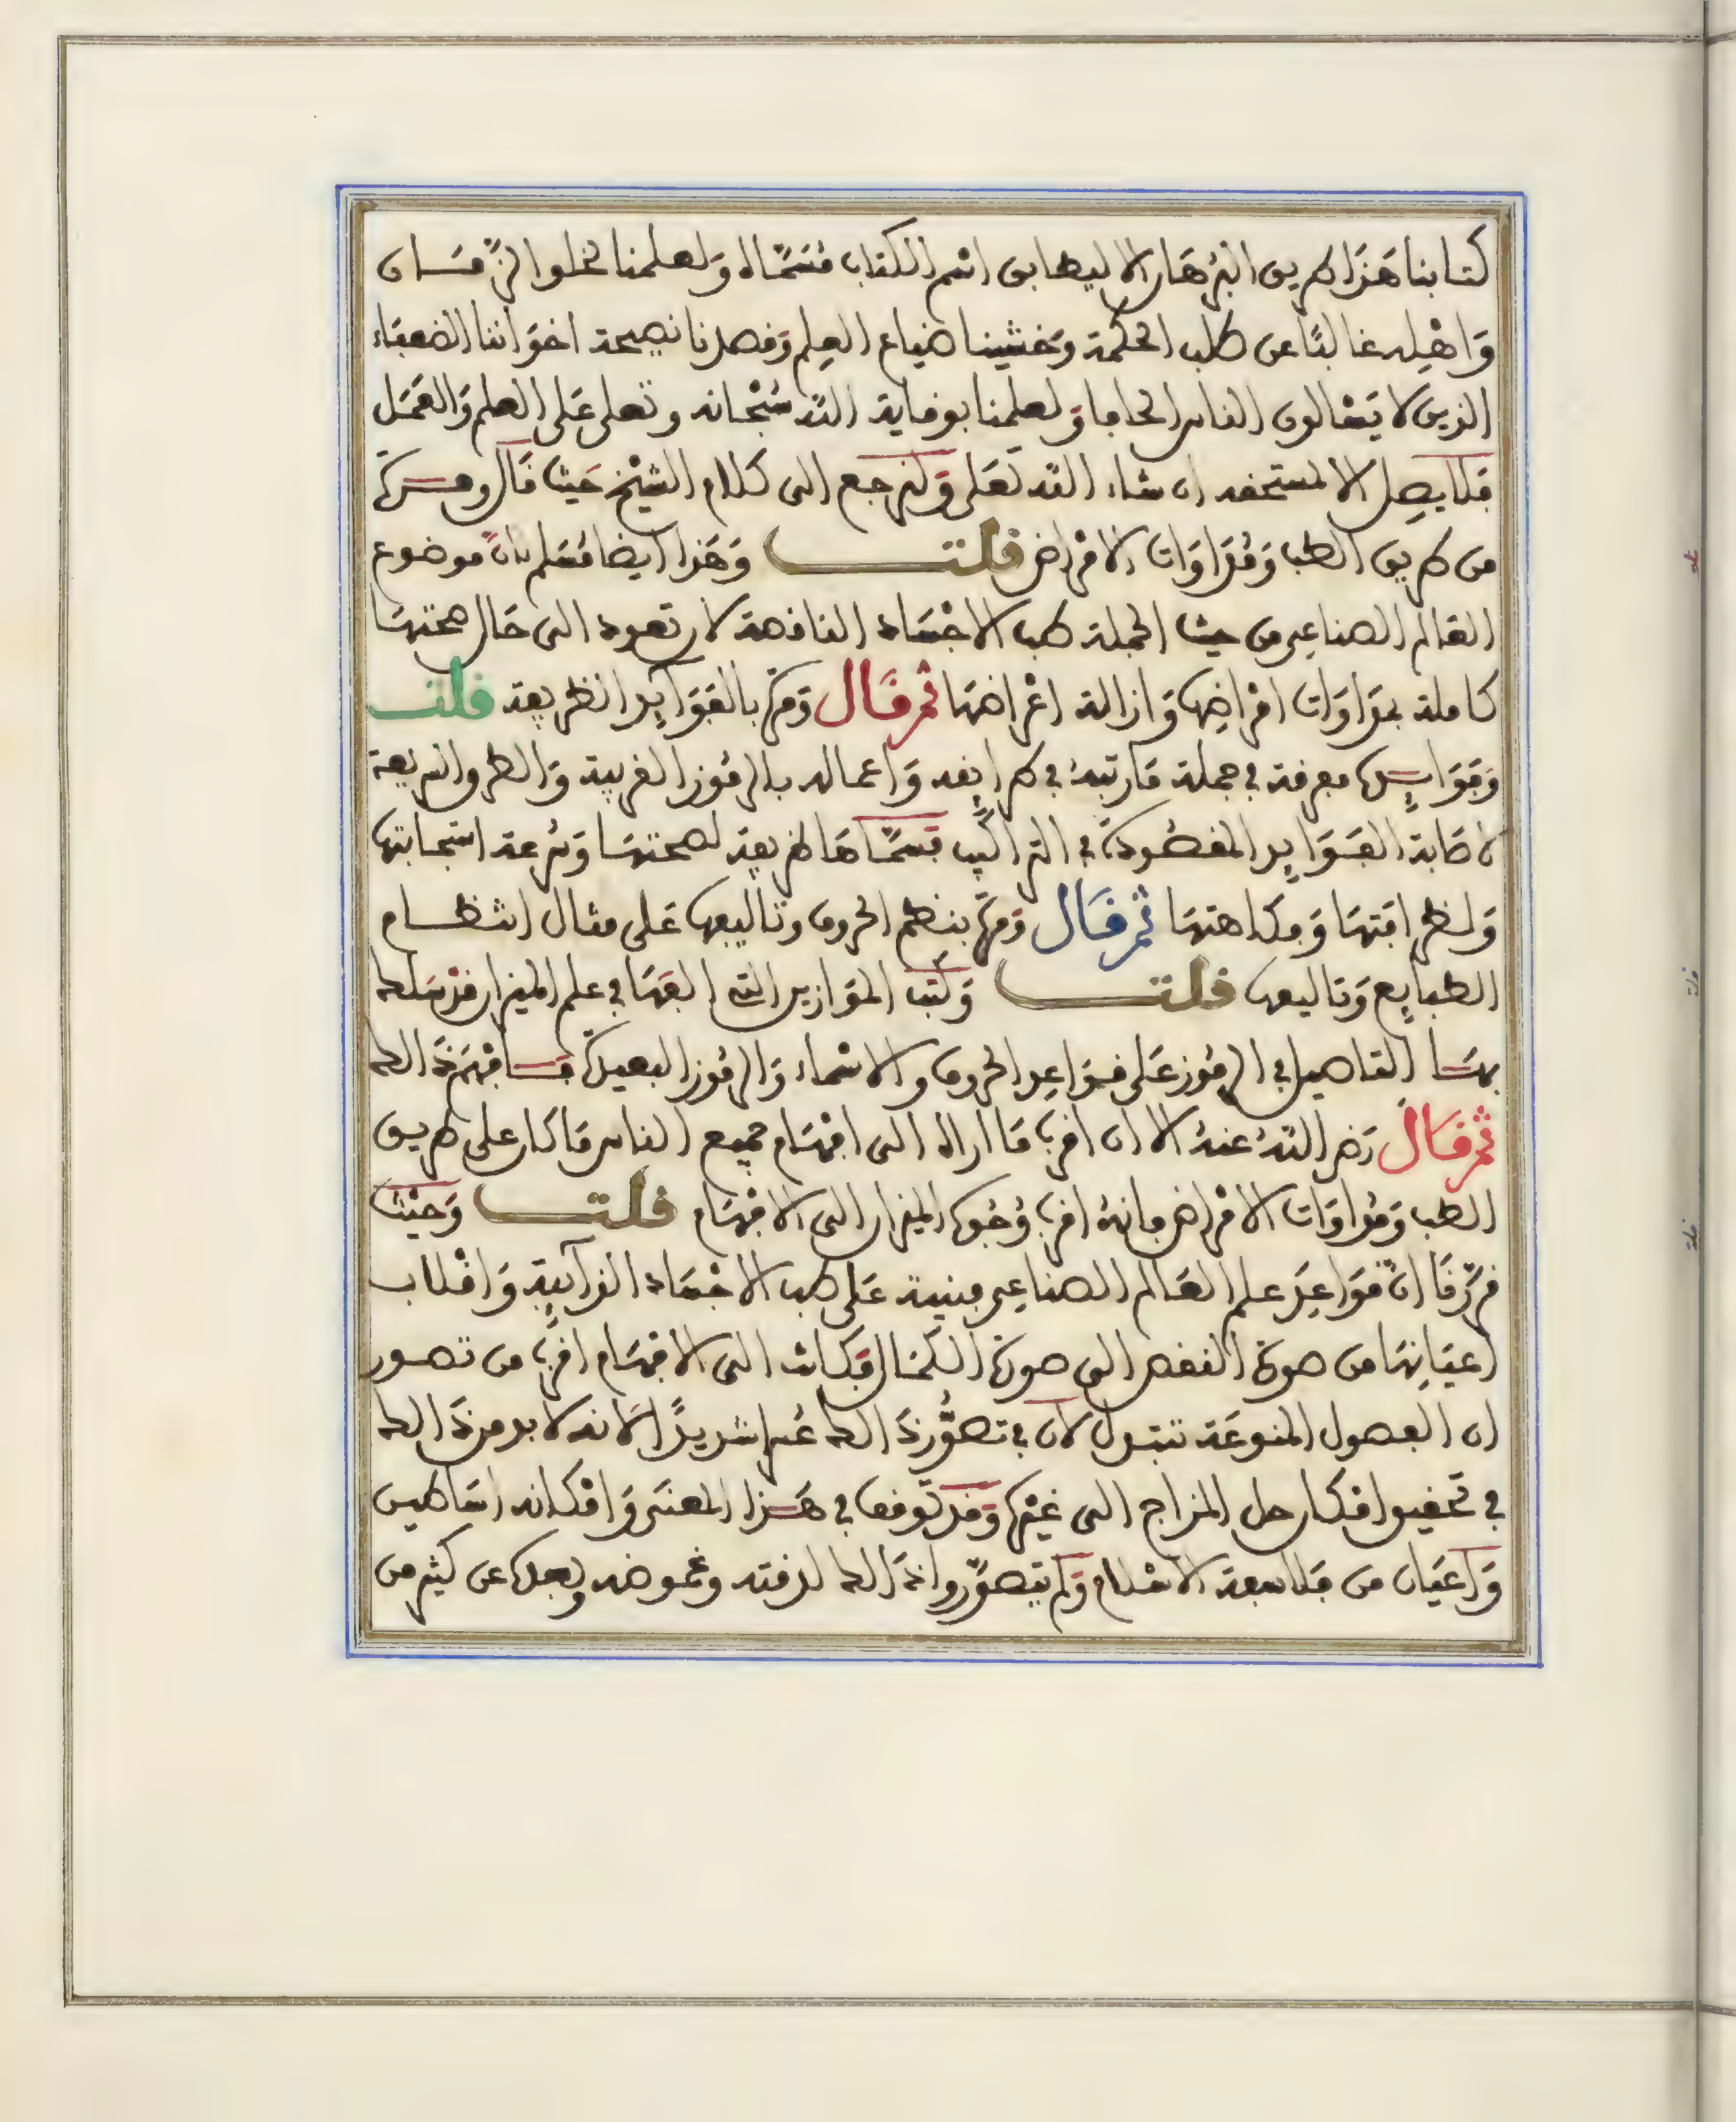 كتابنا هَذَا طريق البُرهَان الا ليطابق اسْم الكتاب مُسَمّاه وَلعلمنا بخلوا الزّمَان
وَاهْله غالبًا عن طلب الحكمة وَخشينا ضياع العِلم وَقصدنا نصيحة اخوَاننا الضعفاء
الذين لا يَسْالون الناس الحافا وَلعلمنا بوقاية اللّه سُبْحانه وتعلى عَلى العلم وَالعَمَل
فلا يصِل الا لمستحقه ان شاء اللّه تعَلى وَلنرجع الى كلام الشيْخ حَيث قال ومرة
من طريق الطب وَمُدَاوَات الامْراض قلت وَهَذا ايضا مُسَلم بانّ موضوع
العَالم الصناعِي من حيث الجملة طب الاجْسَاد الناقصة لان تعود الى حَال صحتهَا
كاملة بمدَاوَات امْراضِها وَازالة اعْراضهَا ثم قَال وَمرّة بالفوَآيِد الظريفة قلت
وَفوَايِد معرفة في جملة مَا رتبهُ في طرايقه وَاعماله بالرمُوز الغريبة وَالطروالسريعة
لاصَابة الفَوَايِد المقصُودَة في التراكيب قسَمّاهَا ظريفة لصحتهَا وَسُرعة استجابتها
وَلظرافتهَا وَفكاهتهَا ثم قَال وَمرّة بنظم الحروف وتاليفها عَلى مثال انتظام
الطبايع وَتاليفها قلت وَكتب المَوَازين التي الفهَا في علم الميزان قدْ سَلك
بهَا التفاصيل في الرمُوز عَلى قوَاعِد الحروف والاسْماء وَالرمُوز البعيدة فافهَمْ ذَالك
ثم قال رَضي اللّهُ عنهُ الا ان اقرب مَا اراه الى افهَام جميع الناس مَا كان على طريق
الطب وَمُدَاوَات الامْراض فانهُ اقرب وُجُوه الميزان الى الافهَام قلت وَحَيْث
قرّرنَا انّ قوَاعِد علم العَالم الصناعِي مبنية عَلى طب الاجْسَاد الذآيِبة وَانْقلاب
اعيَانِهَا من صورة النقص الى صورة الكمال فكانت الى الافهَام اقرب من تصور
ان الفصول المنوعَة تتبدل لان في تصوُّر ذَالك عُسرا شديدًا الّا انه لا بد من ذَالك
في تحقيق امْكان حل المزاج الى غيْرها وَقد توقف في هَذا المعنى وَامْكانه اسَاطين
وَاعيَان من فلاسفة الاسْلام وَلم يتصوّروا ذَالك لدقته وغموضه وبعده عن كثير من